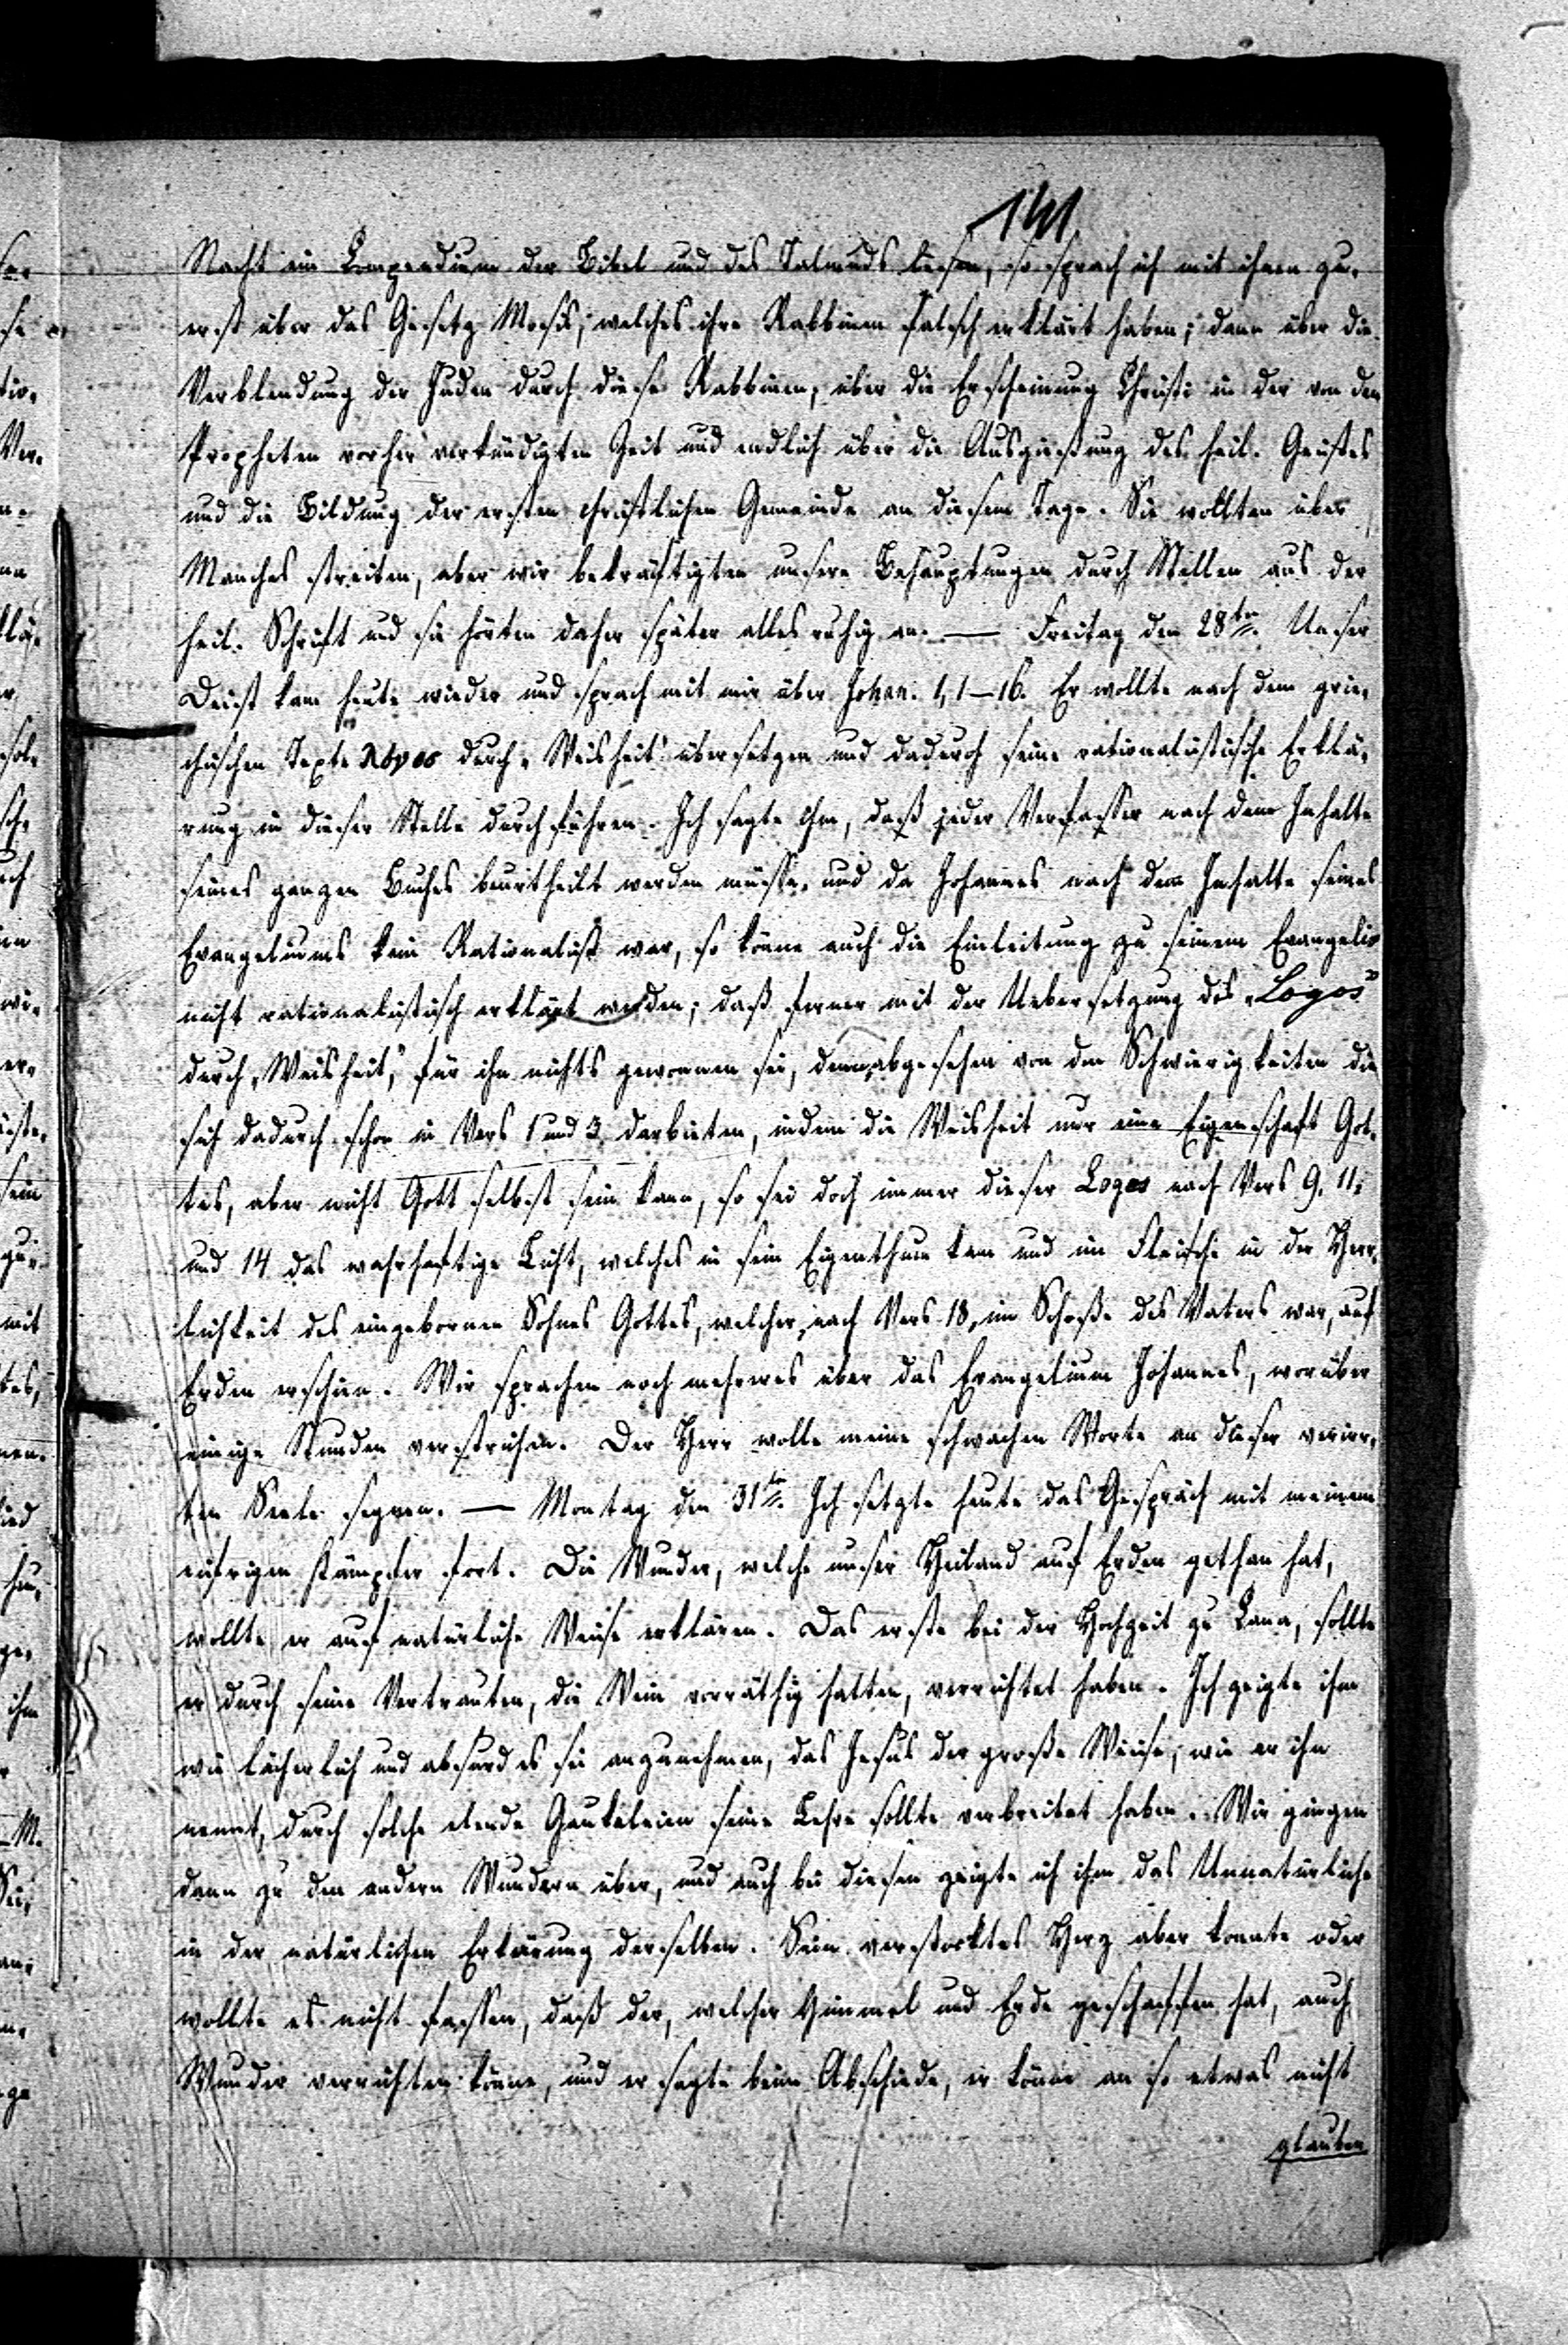 141
Nacht ein Compendium der Bibel und des Talmuds lesen, so sprach ich mit ihnen zu-
erst über das Gesetz Mosis, welches ihre Rabbinen falsch erklärt haben; dann über die
Verblendung der Juden durch diese Rabbinen, über die Erscheinung Christi in der von den
Propheten vorher verkündigten Zeit und endlich über die Ausgießung des heil. Geistes
und die Bildung der ersten christlichen Gemeinde an diesem Tage. Sie wollten über
Manches streiten, aber wir bekräftigten unsere Behauptungen durch Stellen aus der
heil. Schrift und sie hörten daher später alles ruhig an. — Freitag den 28ten. Unser
Deist kam heute wieder und sprach mit mir über Johan. 1, 1–16. Er wollte nach dem grie-
chischen Texte λόγος durch „Weisheit" übersetzen und dadurch seine rationalistische Erklä-
rung in dieser Stelle durchführen. Ich sagte ihm, daß jeder Verfasser nach dem Inhalte
seines ganzen Buches beurtheilt werden müsse, und da Johannes nach dem Inhalte seines
Evangeliums kein Rationalist war, so könne auch die Einleitung zu seinem Evangelio
nicht rationalistisch erklärt werden; daß ferner mit der Uebersetzung des „Logos"
durch „Weisheit," für ihn nichts gewonnen sei, denn, abgesehen von den Schwierigkeiten die
sich dadurch schon in Vers 1 und 3 darbieten, indem die Weisheit nur eine Eigenschaft Got-
tes, aber nicht Gott selbst sein kann, so sei doch immer dieser Logos nach Vers 9. 11.
und 14 das wahrhaftige Licht, welches in sein Eigenthum kam und im Fleische in der Herr-
lichkeit des eingebornen Sohnes Gottes, welcher, nach Vers 18, im Schoße des Vaters war, auf
Erden erschien. Wir sprachen noch mehreres über das Evangelium Johannes, worüber
einige Stunden verstrichen. Der Herr wolle meine schwachen Worte an dieser verirr-
ten Seele segnen. — Montag den 31ten. Ich setzte heute das Gespräch mit meinem
eifrigen Kämpfer fort. Die Wunder, welche unser Heiland auf Erden gethan hat,
wollte er auf natürliche Weise erklären. Das erste bei der Hochzeit zu Cana, sollte
er durch seine Vertrauten, die Wein vorräthig hatten, verrichtet haben. Ich zeigte ihm
wie lächerlich und absurd es sei anzunehmen, das Jesus der große Weise, wie er ihn
nennt, durch solche elende Gaukeleien seine Lehre sollte verbreitet haben. Wir gingen
dann zu den andern Wundern über, und auch bei diesen zeigte ich ihm das Unnatürliche
in der natürlichen Erklärung derselben. Sein verstocktes Herz aber konnte oder
wollte es nicht fassen, daß der, welcher Himmel und Erde geschaffen hat, auch
Wunder verrichten könne, und er sagte beim Abschiede, er könne an so etwas nicht
glauben